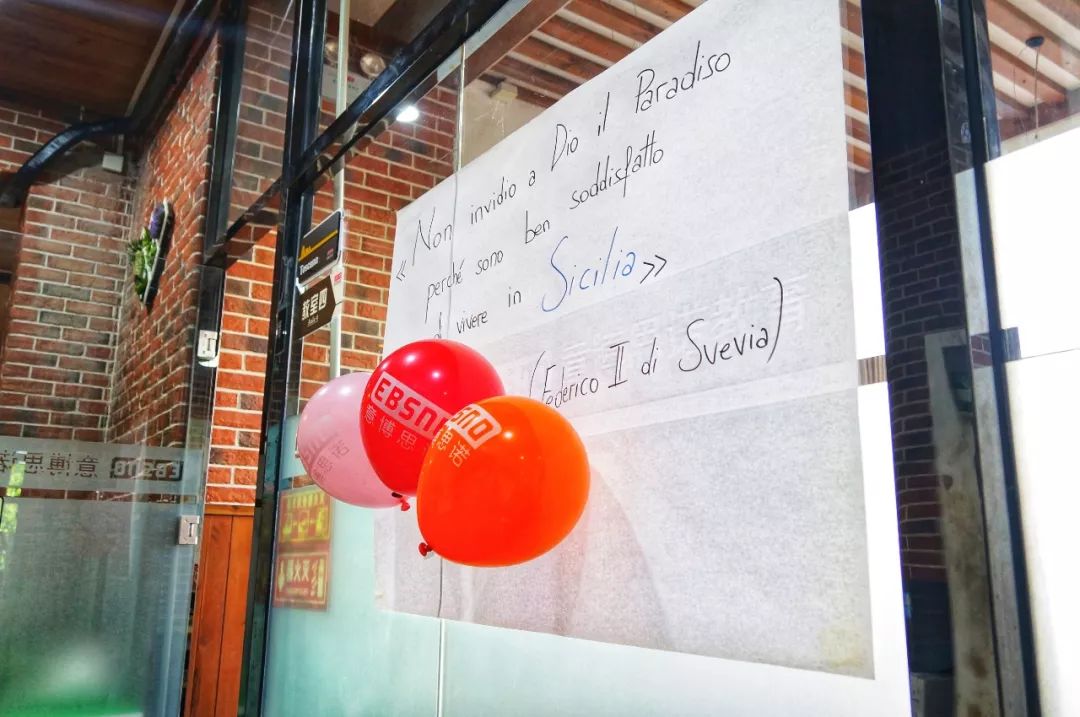 «Non invidio a Dio il Paradiso
perché sono ben soddisfatto
di vivere in Sicilia»
(Federico II di Svevia)
Toscana
教室四
EBSNO
意博思
思诺
EBSNO
意博思诺